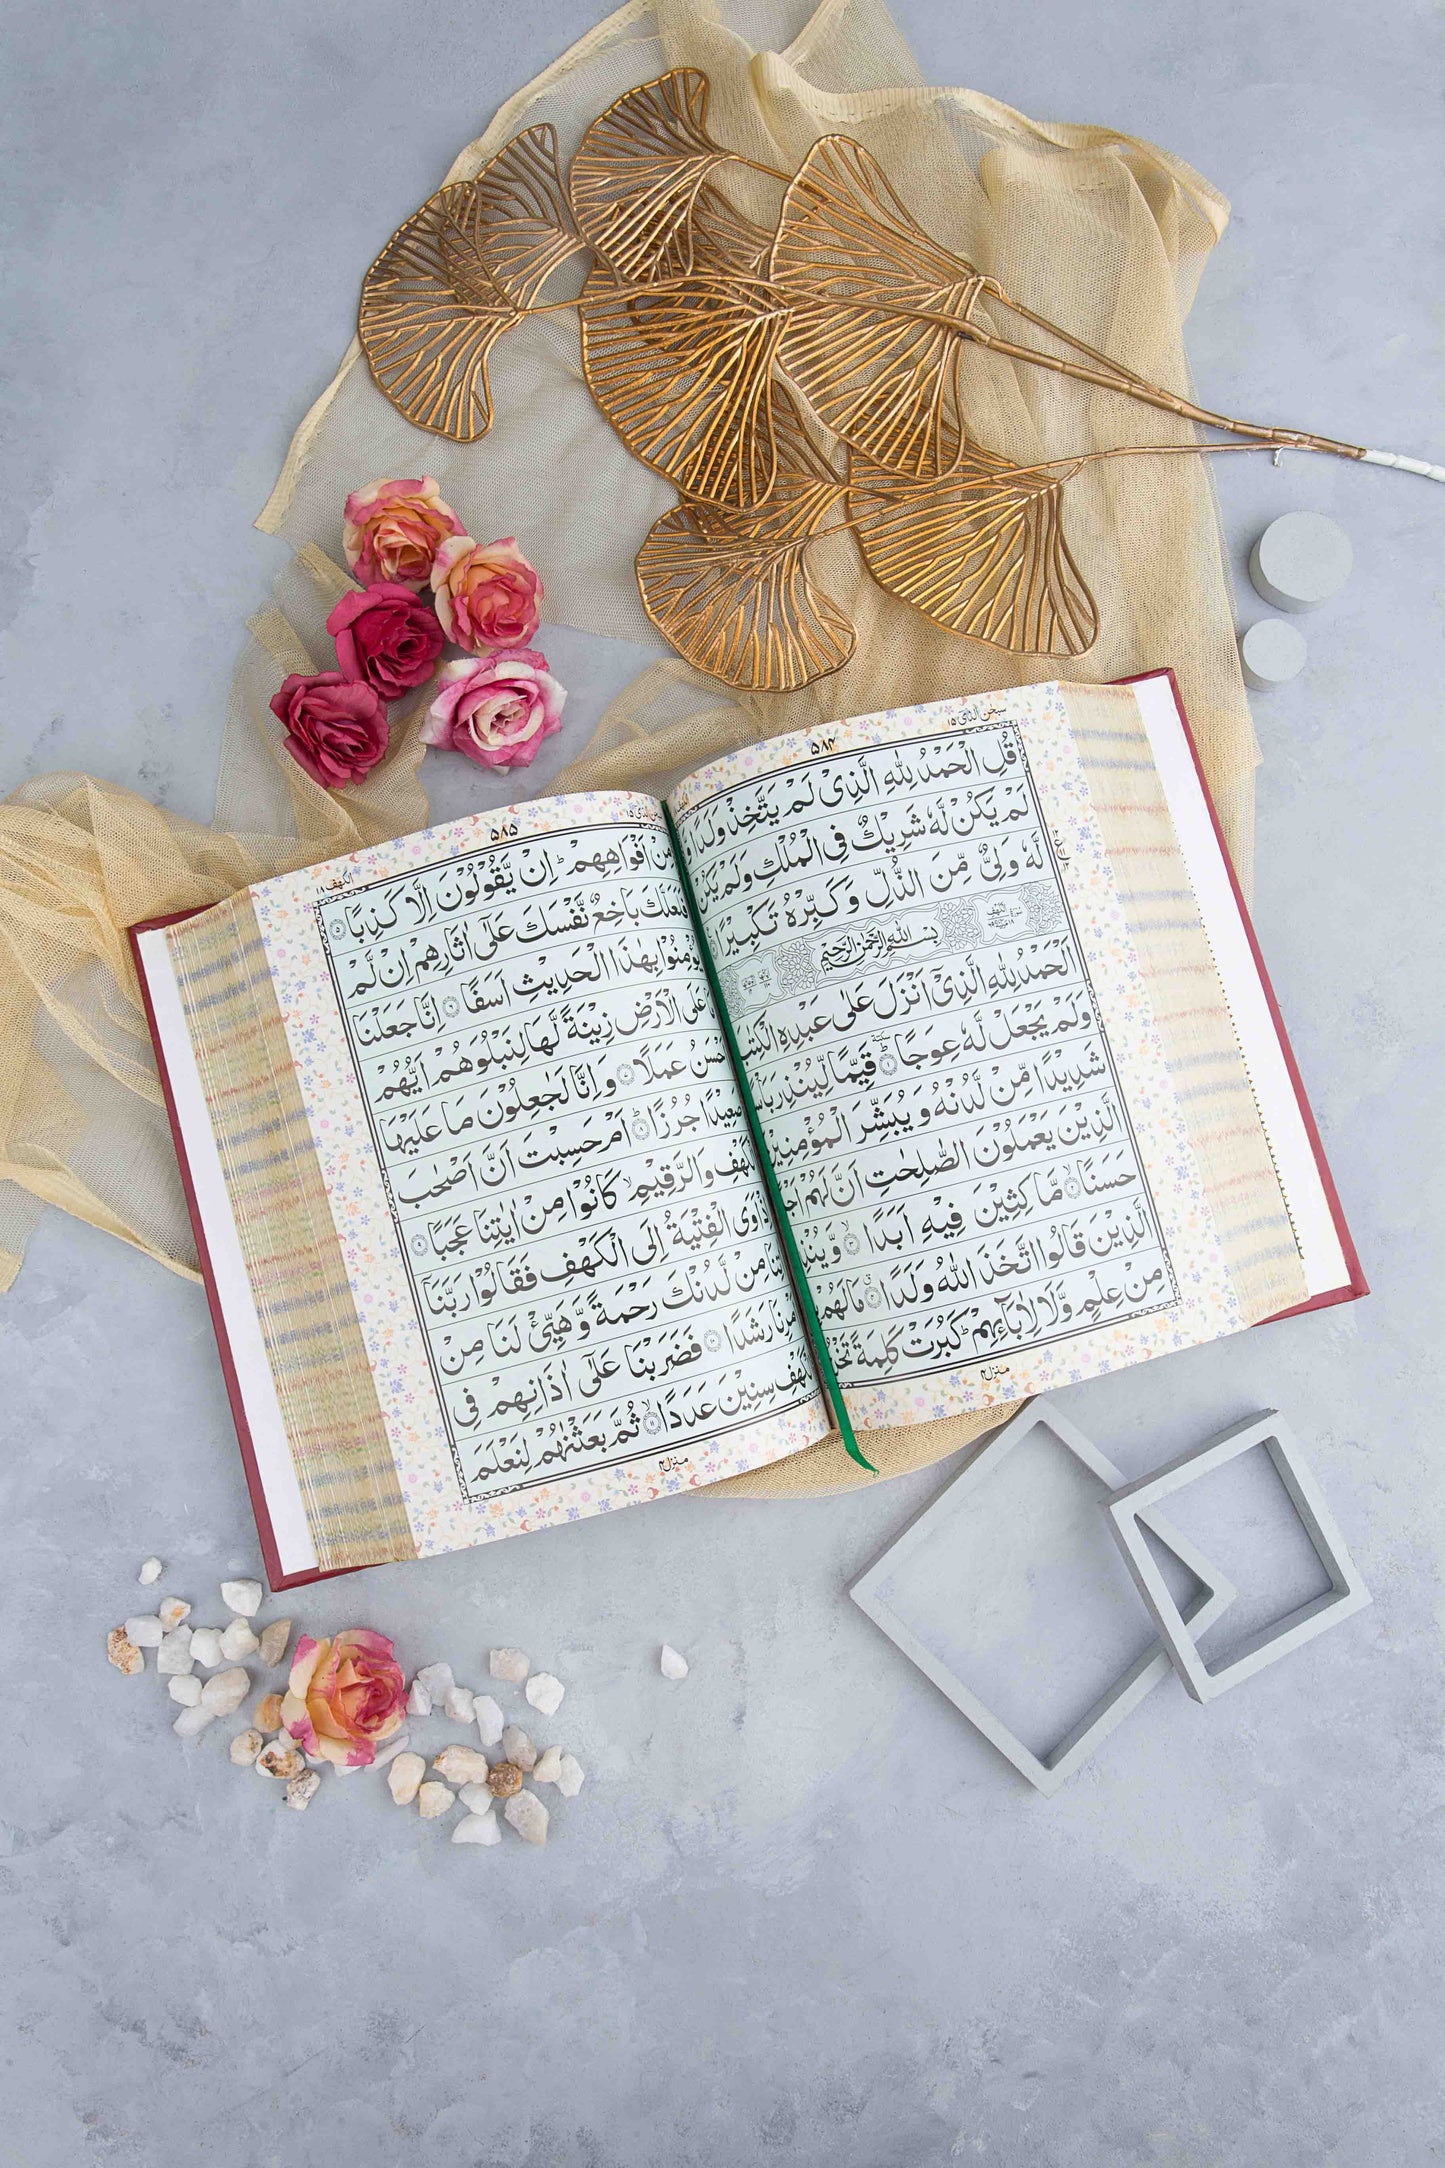 سبحن الذی ۱۵
۵۸۴
قُلِ الْحَمْدُ لِلّٰهِ الَّذِیْ لَمْ یَتَّخِذْ وَلَدًا وَّ
لَمْ یَكُنْ لَّهٗ شَرِیْكٌ فِی الْمُلْكِ وَلَمْ یَكُنْ
لَّهٗ وَلِیٌّ مِّنَ الذُّلِّ وَكَبِّرْهُ تَكْبِیْرًا
بِسْمِ اللّٰهِ الرَّحْمٰنِ الرَّحِیْمِ
اَلْحَمْدُ لِلّٰهِ الَّذِیْۤ اَنْزَلَ عَلٰی عَبْدِهِ الْكِتٰبَ
وَلَمْ یَجْعَلْ لَّهٗ عِوَجًا ۱ قَیِّمًا لِّیُنْذِرَ بَاْسًا
شَدِیْدًا مِّنْ لَّدُنْهُ وَیُبَشِّرَ الْمُؤْمِنِیْنَ
الَّذِیْنَ یَعْمَلُوْنَ الصّٰلِحٰتِ اَنَّ لَهُمْ
حَسَنًا ۲ مَّاكِثِیْنَ فِیْهِ اَبَدًا ۳ وَّیُنْذِرَ
الَّذِیْنَ قَالُوا اتَّخَذَ اللّٰهُ وَلَدًا ۴ مَا لَهُمْ
مِنْ عِلْمٍ وَّلَا لِاٰبَآئِهِمْ ؕ كَبُرَتْ كَلِمَةً
منزل۴
۵۸۵
الكهف ۱۸
مِنْ اَفْوَاهِهِمْ ؕ اِنْ یَّقُوْلُوْنَ اِلَّا كَذِبًا ۵
فَلَعَلَّكَ بَاخِعٌ نَّفْسَكَ عَلٰۤی اٰثَارِهِمْ اِنْ لَّمْ
یُؤْمِنُوْا بِهٰذَا الْحَدِیْثِ اَسَفًا ۶ اِنَّا جَعَلْنَا
عَلَی الْاَرْضِ زِیْنَةً لَّهَا لِنَبْلُوَهُمْ اَیُّهُمْ
اَحْسَنُ عَمَلًا ۷ وَاِنَّا لَجٰعِلُوْنَ مَا عَلَیْهَا
صَعِیْدًا جُرُزًا ۸ اَمْ حَسِبْتَ اَنَّ اَصْحٰبَ
الْكَهْفِ وَالرَّقِیْمِ ۙ كَانُوْا مِنْ اٰیٰتِنَا عَجَبًا ۹
اِذْ اَوَی الْفِتْیَةُ اِلَی الْكَهْفِ فَقَالُوْا رَبَّنَاۤ
اٰتِنَا مِنْ لَّدُنْكَ رَحْمَةً وَّهَیِّئْ لَنَا مِنْ
اَمْرِنَا رَشَدًا ۱۰ فَضَرَبْنَا عَلٰۤی اٰذَانِهِمْ فِی
الْكَهْفِ سِنِیْنَ عَدَدًا ۱۱ ثُمَّ بَعَثْنٰهُمْ لِنَعْلَمَ
منزل۴